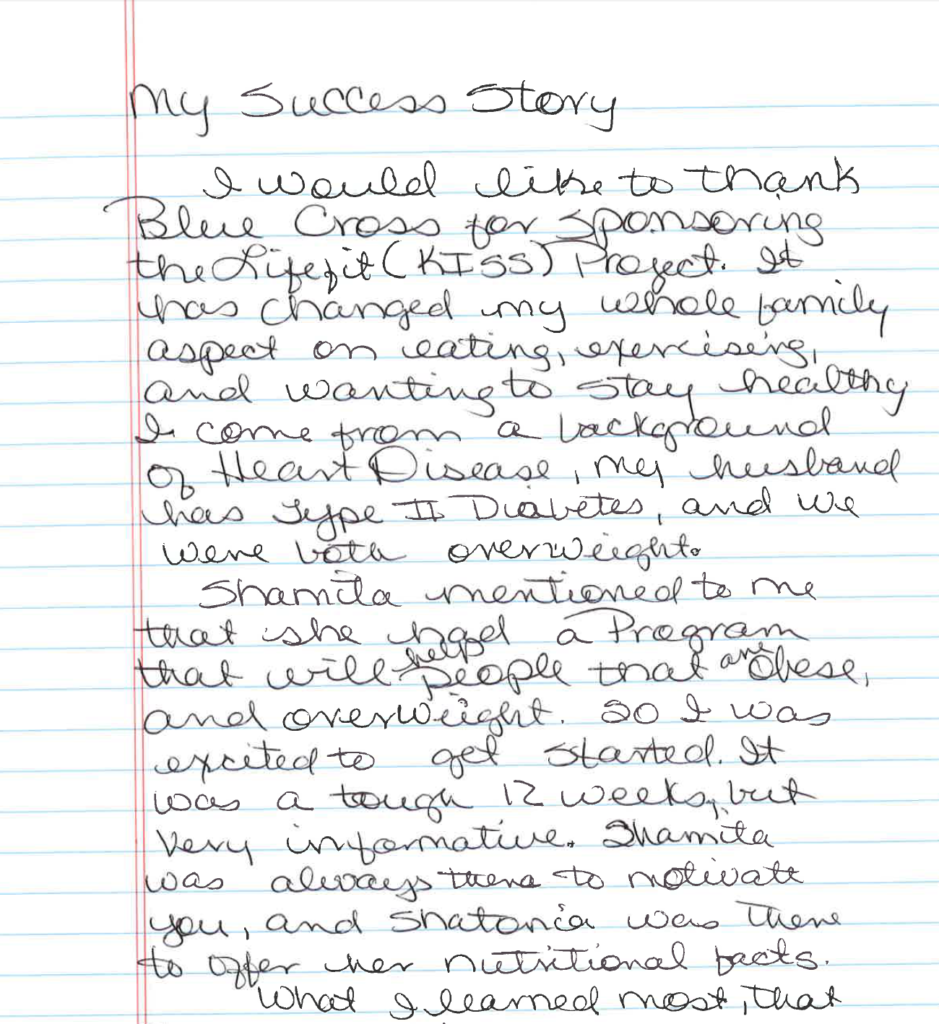 My Success Story
I would like to thank
Blue Cross for sponsoring
the Lifefit (KISS) Project. It
has changed my whole family
aspect on eating, exercising,
and wanting to stay healthy
I come from a background
of Heart Disease, my husband
has Type II Diabetes, and we
were both overweight.
Shamita mentioned to me
that she had a Program
that will help people that are Obese,
and overweight. So I was
excited to get started. It
was a tough 12 weeks, but
very informative. Shamita
was always there to motivate
you, and Shatonia was there
to offer her nutritional facts.
What I learned most, that